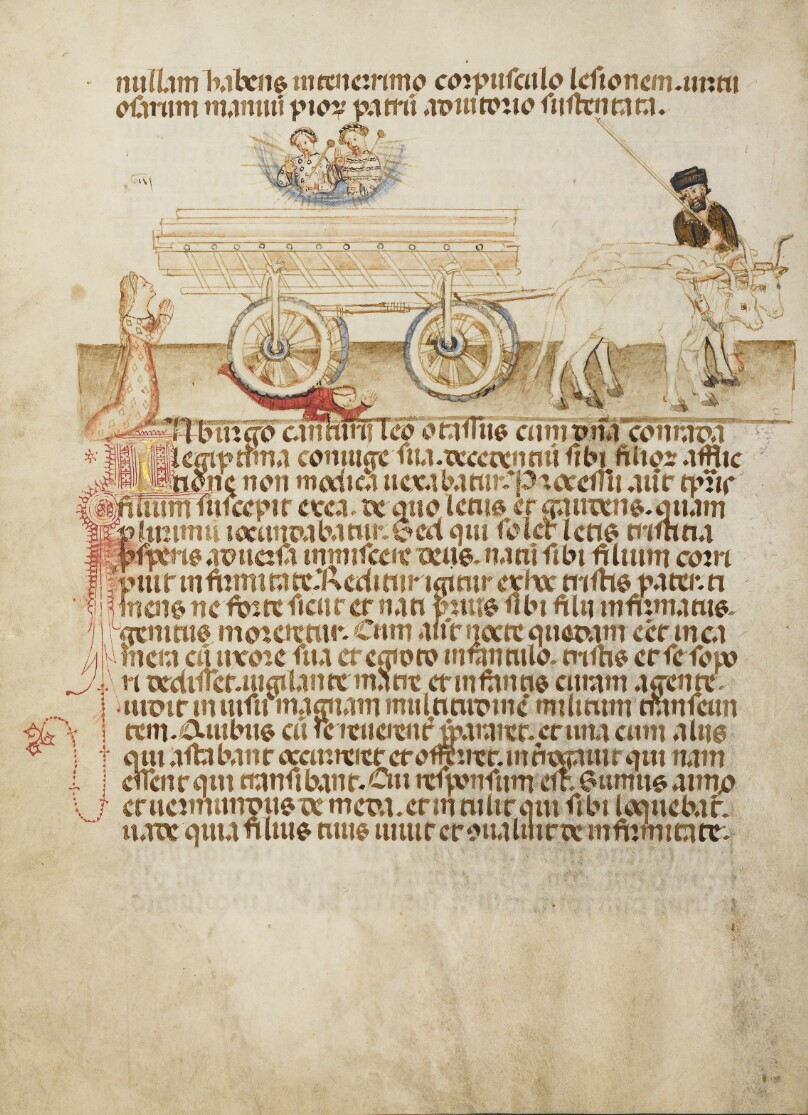 nullam habens intenerrimo corpusculo lesionem. uirtu
osarum manuū pioꝝ patrū adiutorio sustentata.
IN burgo canturij leo otassus cum dn̄a conrada
legiptima coniuge sua. decedentiū sibi filioꝝ afflic
tione non modica uexabatur. Processu aūt tp̄ris
filium suscepit ex ea. de quo letus et gaudens. quam
plurimū iocundabatur. Sed qui solet letis tristitia
ꝓsperis aduersa inmiscere deus. natū sibi filium corri
puit infirmitate. Reditur igitur ex hoc tristis pater. ti
mens ne forte sicut et nati prius sibi filij infirmatus.
genitus moreretur. Cum aūt nocte quadam eēt in ca
mera cū uxore sua et egroto infantulo. tristis et se sopo
ri dedisset. uigilante matre et infantis curam agente.
uidit in uisu magnam multitudinē militum transeun
tem. Quibus cū se reuerent̄ p̄pararet. et una cum alijs
qui astabant occurreret et offerret. int̄rogauit qui nam
essent qui transibant. Cui responsum est. Sumus aimo
et uermundus de meda. et intulit qui sibi loquebat̄.
uade quia filius tuus uiuit et ꝯualuit de infirmitate.